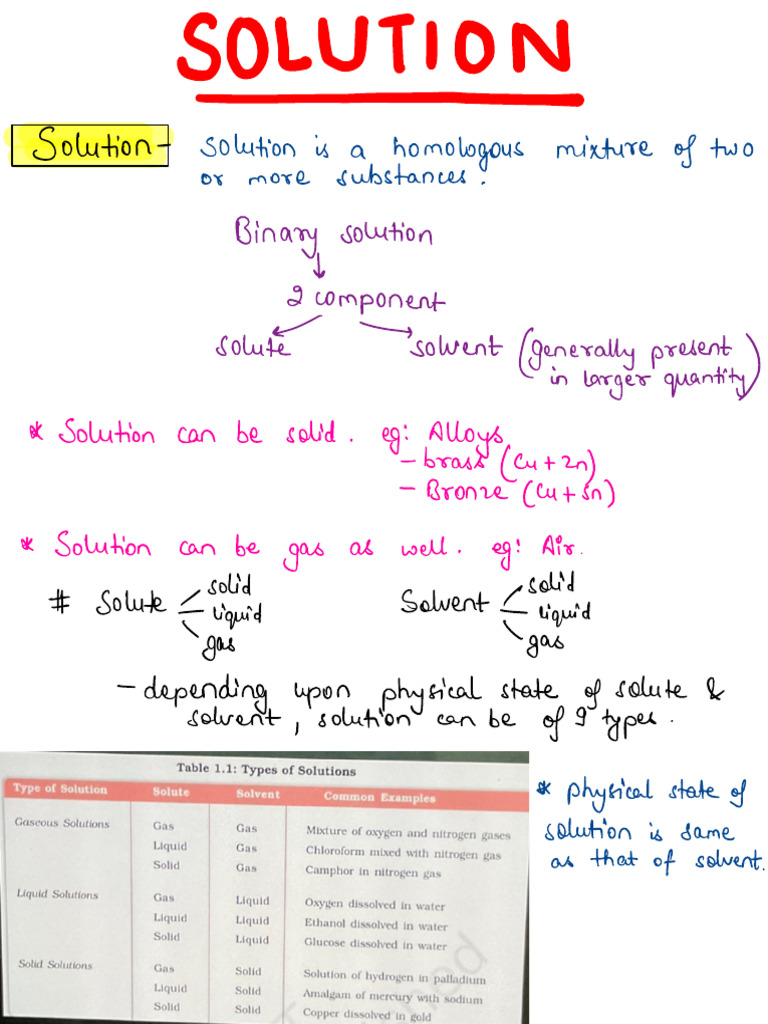 SOLUTION
Solution - Solution is a homologous mixture of two
or more substances.
Binary solution
2 component
solute solvent (generally present
in larger quantity)
* Solution can be solid. eg: Alloys
- brass (Cu + Zn)
- Bronze (Cu + Sn)
* Solution can be gas as well. eg: Air.
# Solute solid liquid gas
Solvent solid liquid gas
- depending upon physical state of solute &
solvent, solution can be of 9 types.
Table 1.1: Types of Solutions
Type of Solution Solute Solvent Common Examples
Gaseous Solutions Gas Gas Mixture of oxygen and nitrogen gases
Liquid Gas Chloroform mixed with nitrogen gas
Solid Gas Camphor in nitrogen gas
Liquid Solutions Gas Liquid Oxygen dissolved in water
Liquid Liquid Ethanol dissolved in water
Solid Liquid Glucose dissolved in water
Solid Solutions Gas Solid Solution of hydrogen in palladium
Liquid Solid Amalgam of mercury with sodium
Solid Solid Copper dissolved in gold
* physical state of
solution is same
as that of solvent.